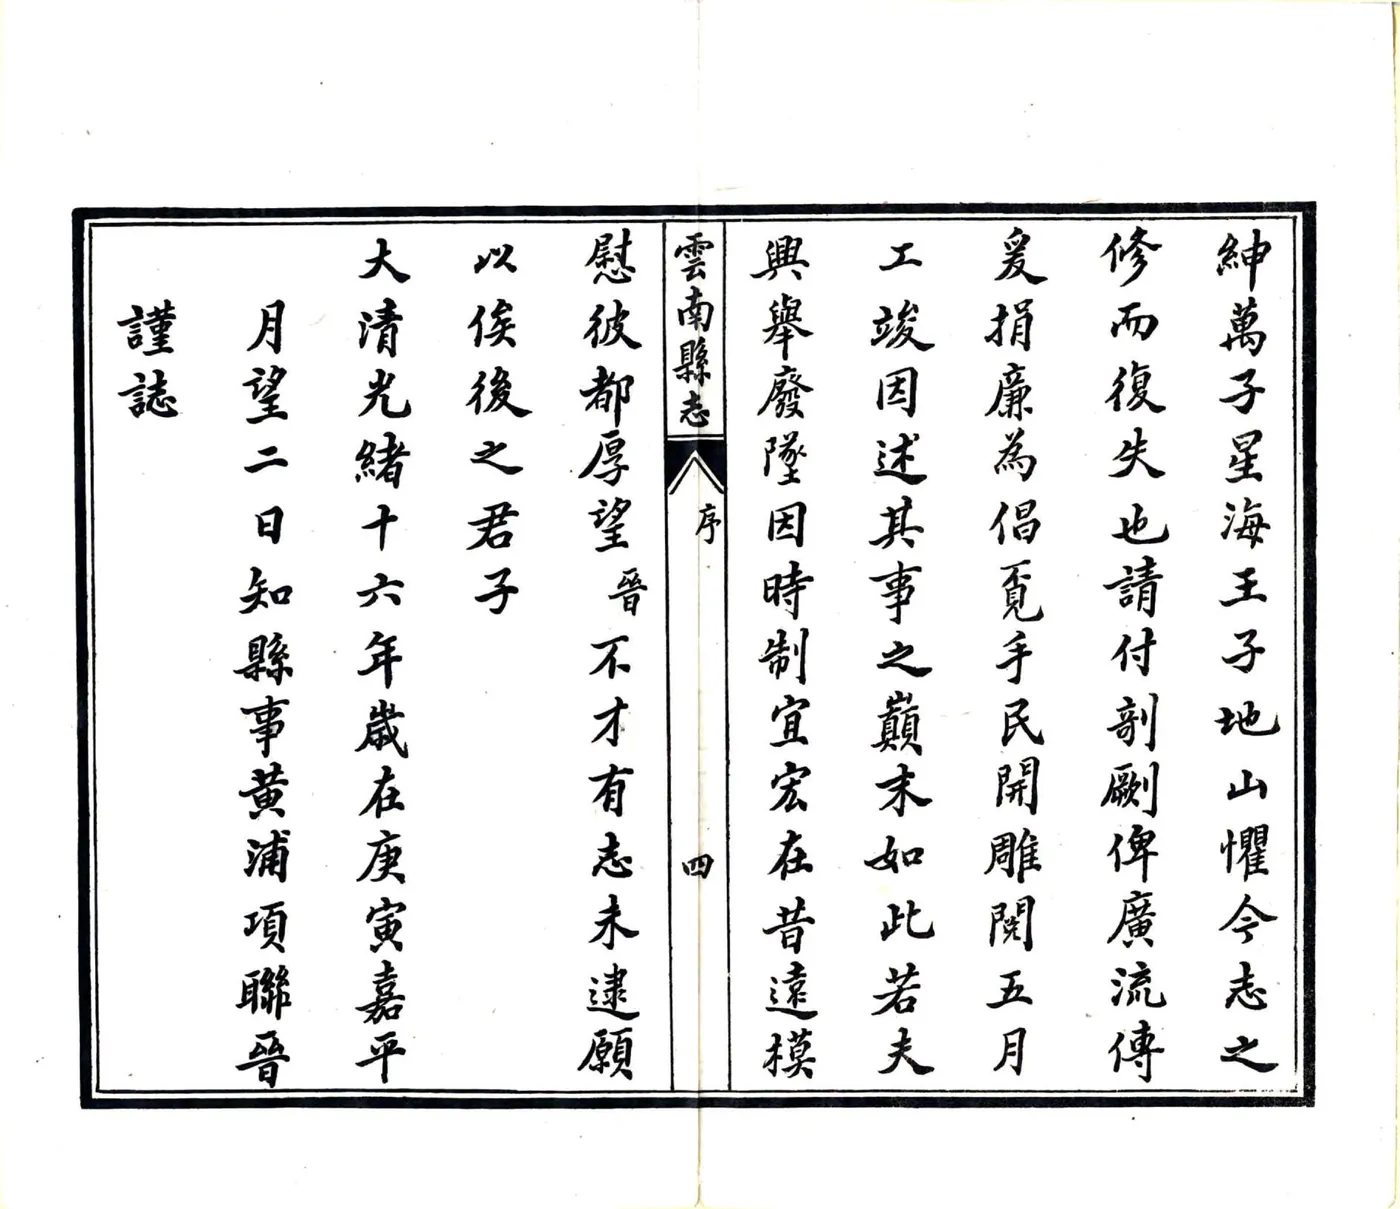 紳萬子星海王子地山懼今志之
修而復失也請付剞劂俾廣流傳
爰捐廉為倡覓手民開雕閱五月
工竣因述其事之巔末如此若夫
興舉廢墜因時制宜宏在昔遠模
雲南縣志
序
四
慰彼都厚望晉不才有志未逮願
以俟後之君子
大清光緒十六年歲在庚寅嘉平
月望二日知縣事黃浦項聯晉
謹誌